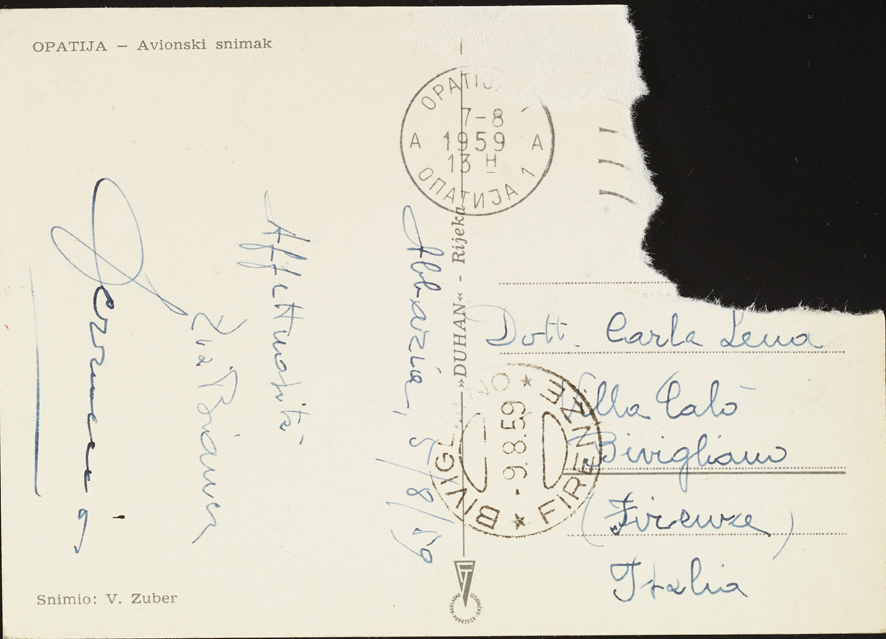 OPATIJA — Avionski snimak
Abbazia, 5/8/59
Affettuosità
Zia Bianca
Germana
Snimio: V. Zuber
»DUHAN« - Rijeka
OPATIJA
7-8
A 1959 A
13 H
ОПАТИЈА 1
Dott. Carla Lena
Villa Calò
Bivigliano
(Firenze)
Italia
BIVIGLIANO
-9.8.59
FIRENZE